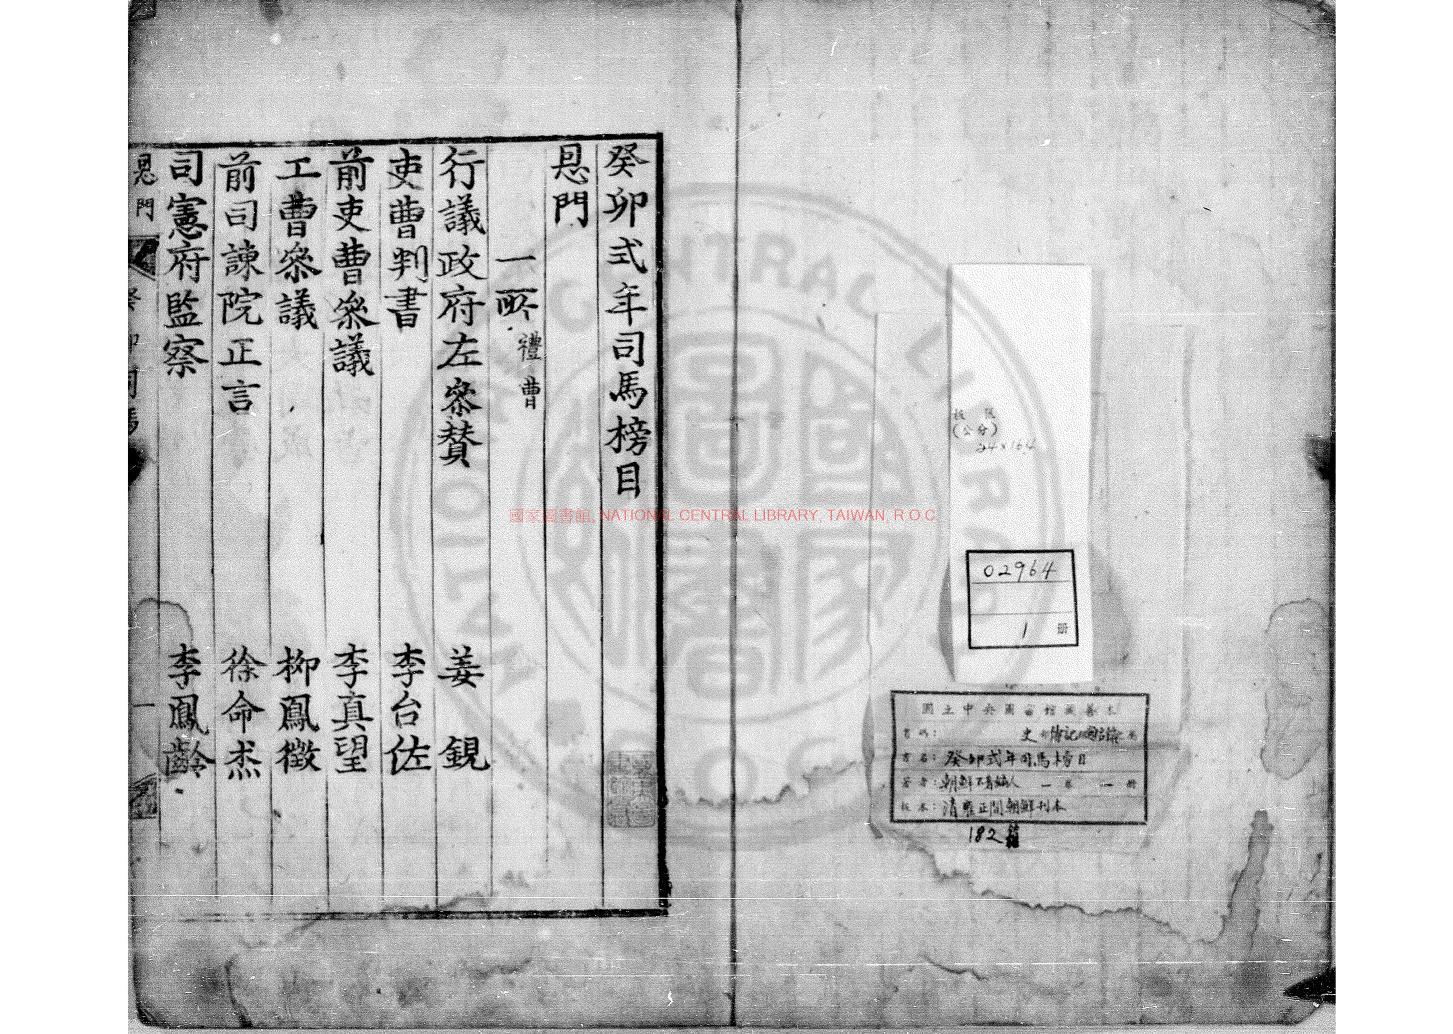 板匡
(公分)
24×16.4
02964
1 册
國立中央圖書館藏善本
書碼：史 傳記
書名：癸卯式年司馬榜目
著者：朝鮮不著編人 一卷 一册
板本：清雍正間朝鮮刊本
182
癸卯式年司馬榜目
恩門
一所 禮曹
行議政府左參贊 姜鋧
吏曹判書 李台佐
前吏曹參議 李真望
工曹參議 柳鳳徵
前司諫院正言 徐命杰
司憲府監察 李鳳齡
恩門 癸卯司馬 一
國家圖書館, NATIONAL CENTRAL LIBRARY, TAIWAN, R.O.C